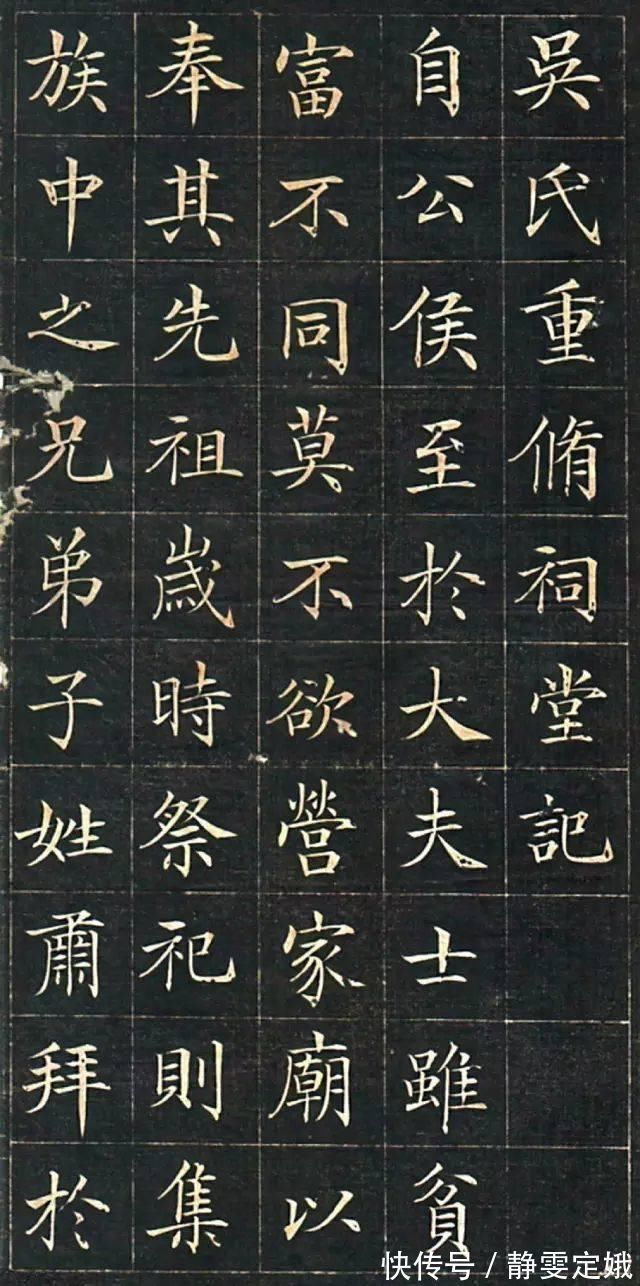 吳氏重脩祠堂記
自公侯至於大夫士雖貧
富不同莫不欲營家廟以
奉其先祖歲時祭祀則集
族中之兄弟子姓肅拜於
快传号/静雯定娥